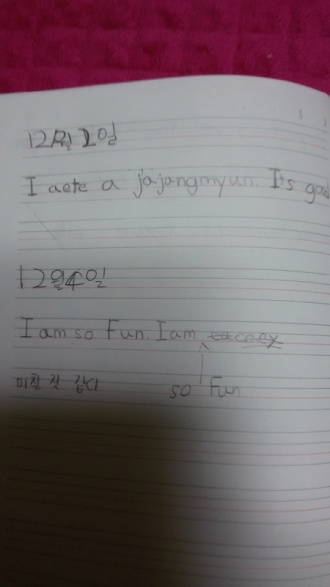 12월 2일
I aete a jajangmyun. It's good
12월4일
I am so Fun. I am
so Fun
미칠 것 같다